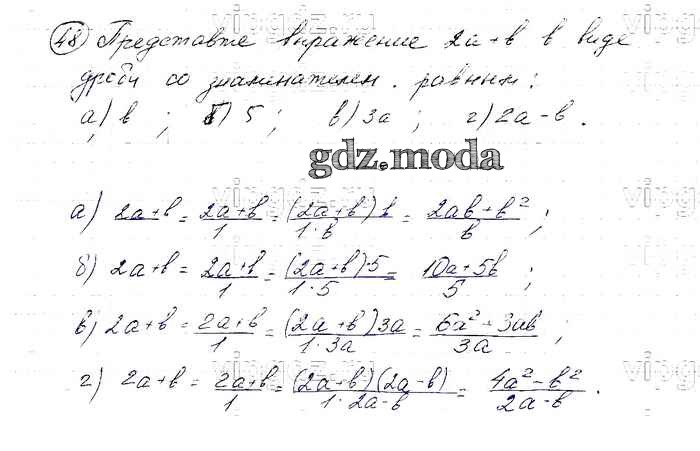 48 Представте выражение 2a+b в виде
дроби со знаминателем. равным:
а) b ; б) 5 ; в) 3a ; г) 2a-b .
gdz.moda
а) 2a+b = (2a+b)/1 = ((2a+b)b)/(1·b) = (2ab+b²)/b ;
б) 2a+b = (2a+b)/1 = ((2a+b)·5)/(1·5) = (10a+5b)/5 ;
в) 2a+b = (2a+b)/1 = ((2a+b)3a)/(1·3a) = (6a²+3ab)/3a ;
г) 2a+b = (2a+b)/1 = ((2a+b)(2a-b))/(1·2a-b) = (4a²-b²)/(2a-b) .